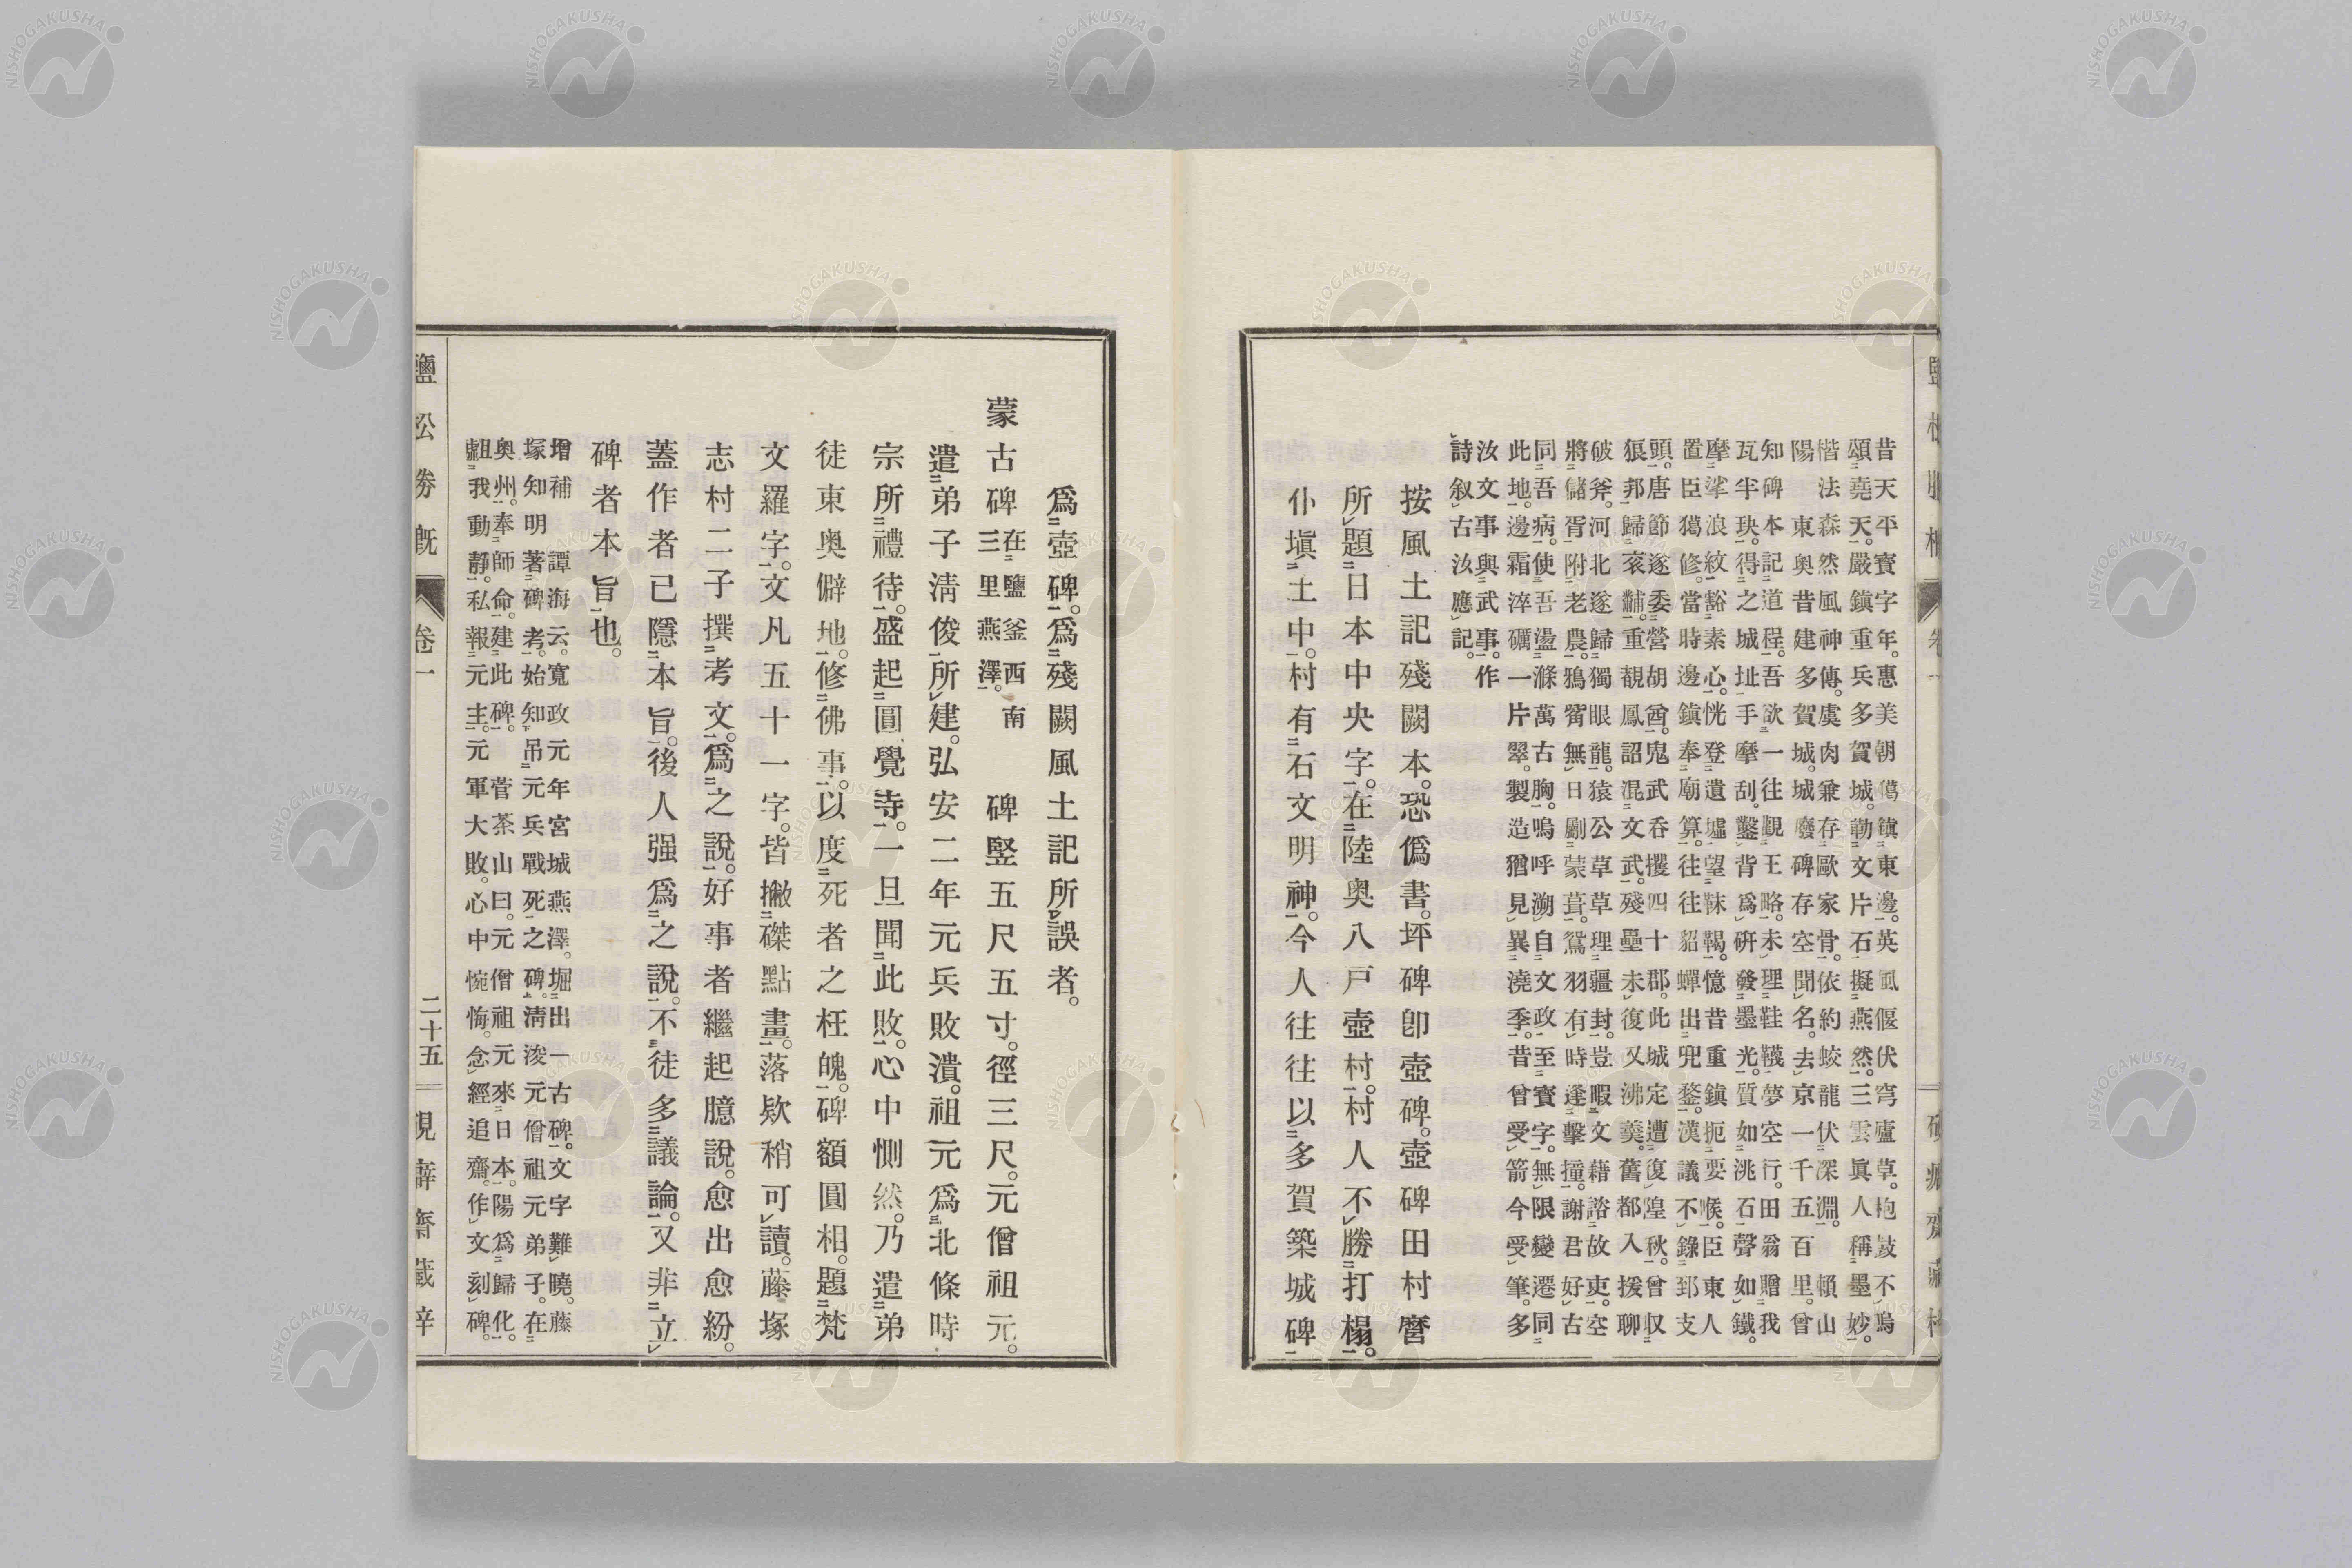 昔天平寶字年。惠美朝獦鎮東邊。英風偃伏穹廬草。抱鼓不鳴
頌堯天。嚴鎮重兵多賀城。勒文片石擬燕然。三雲眞人稱墨妙。
楷法森然風神傳。虞肉兼存歐家骨。依約蛟龍伏深淵。賴山
陽東奥昔建多賀城。城廢碑存空聞名。去京一千五百里。曾
知碑本記道程。吾欲一往覩王略。未理鞋韈夢空行。田翁贈我
瓦半玦。得之城址手摩刮。鑿背爲硏發墨光。質如洮石聲如鐵。
摩挲浪紋豁素心。恍登遺墟望靺鞨。憶昔重鎮扼要喉。臣東人
置臣獦修。當時邊鎮奉廟算。往往貂蟬出兜鍪。漢議不錄郅支
頭。唐節遂委營胡酋。鬼武呑攫四十郡。此城定遭復隍秋。曾収
狼邦歸袞黼。重覩鳳詔混文武。殘壘未復又沸羹。舊都入援聊
破斧。河北遂歸獨眼龍。猿公草草理疆封。豈暇文藉諮故吏。空
將儲胥附老農。鴉觜無日劚蒙葺。鴛羽有時逢擊撞。謝君好古
同吾病。使吾盪滌萬古胸。嗚呼溯自文政至寶字。無限變遷同
此地。邊霜淬礪一片翠。製造猶見異澆季。昔曾受箭今受筆。多
汝文事與武事。作
詩叙古汝應記。
按風土記殘闕本。恐僞書。坪碑卽壺碑。壺碑田村麿
所題日本中央字。在陸奥八戸壺村。村人不勝打榻。
仆塡土中。村有石文明神。今人往往以多賀築城碑
爲壺碑。爲殘闕風土記所誤者。
蒙古碑 在鹽釜西南三里燕澤。 碑竪五尺五寸。徑三尺。元僧祖元。
遣弟子淸俊所建。弘安二年元兵敗潰。祖元爲北條時
宗所禮待。盛起圓覺寺。一旦聞此敗。心中惻然。乃遣弟
徒東奥僻地。修佛事。以度死者之枉魄。碑額圓相。題梵
文羅字。文凡五十一字。皆撇磔點畫。落欵稍可讀。藤塚
志村二子撰考文。爲之説。好事者繼起臆説。愈出愈紛。
蓋作者已隱本旨。後人强爲之説。不徒多議論。又非立
碑者本旨也。
増補 譚海云。寛政元年宮城燕澤。堀出一古碑。文字難曉。藤
塚知明著碑考。始知吊元兵戰死之碑。淸浚元僧祖元弟子。在
奥州。奉師命。建此碑。 菅茶山曰。元僧祖元來日本。陽爲歸化。
覰我動靜。私報元主。元軍大敗。心中惋悔。念經追齋。作文刻碑。
鹽松勝概 卷一 二十五 硯癖齋藏梓